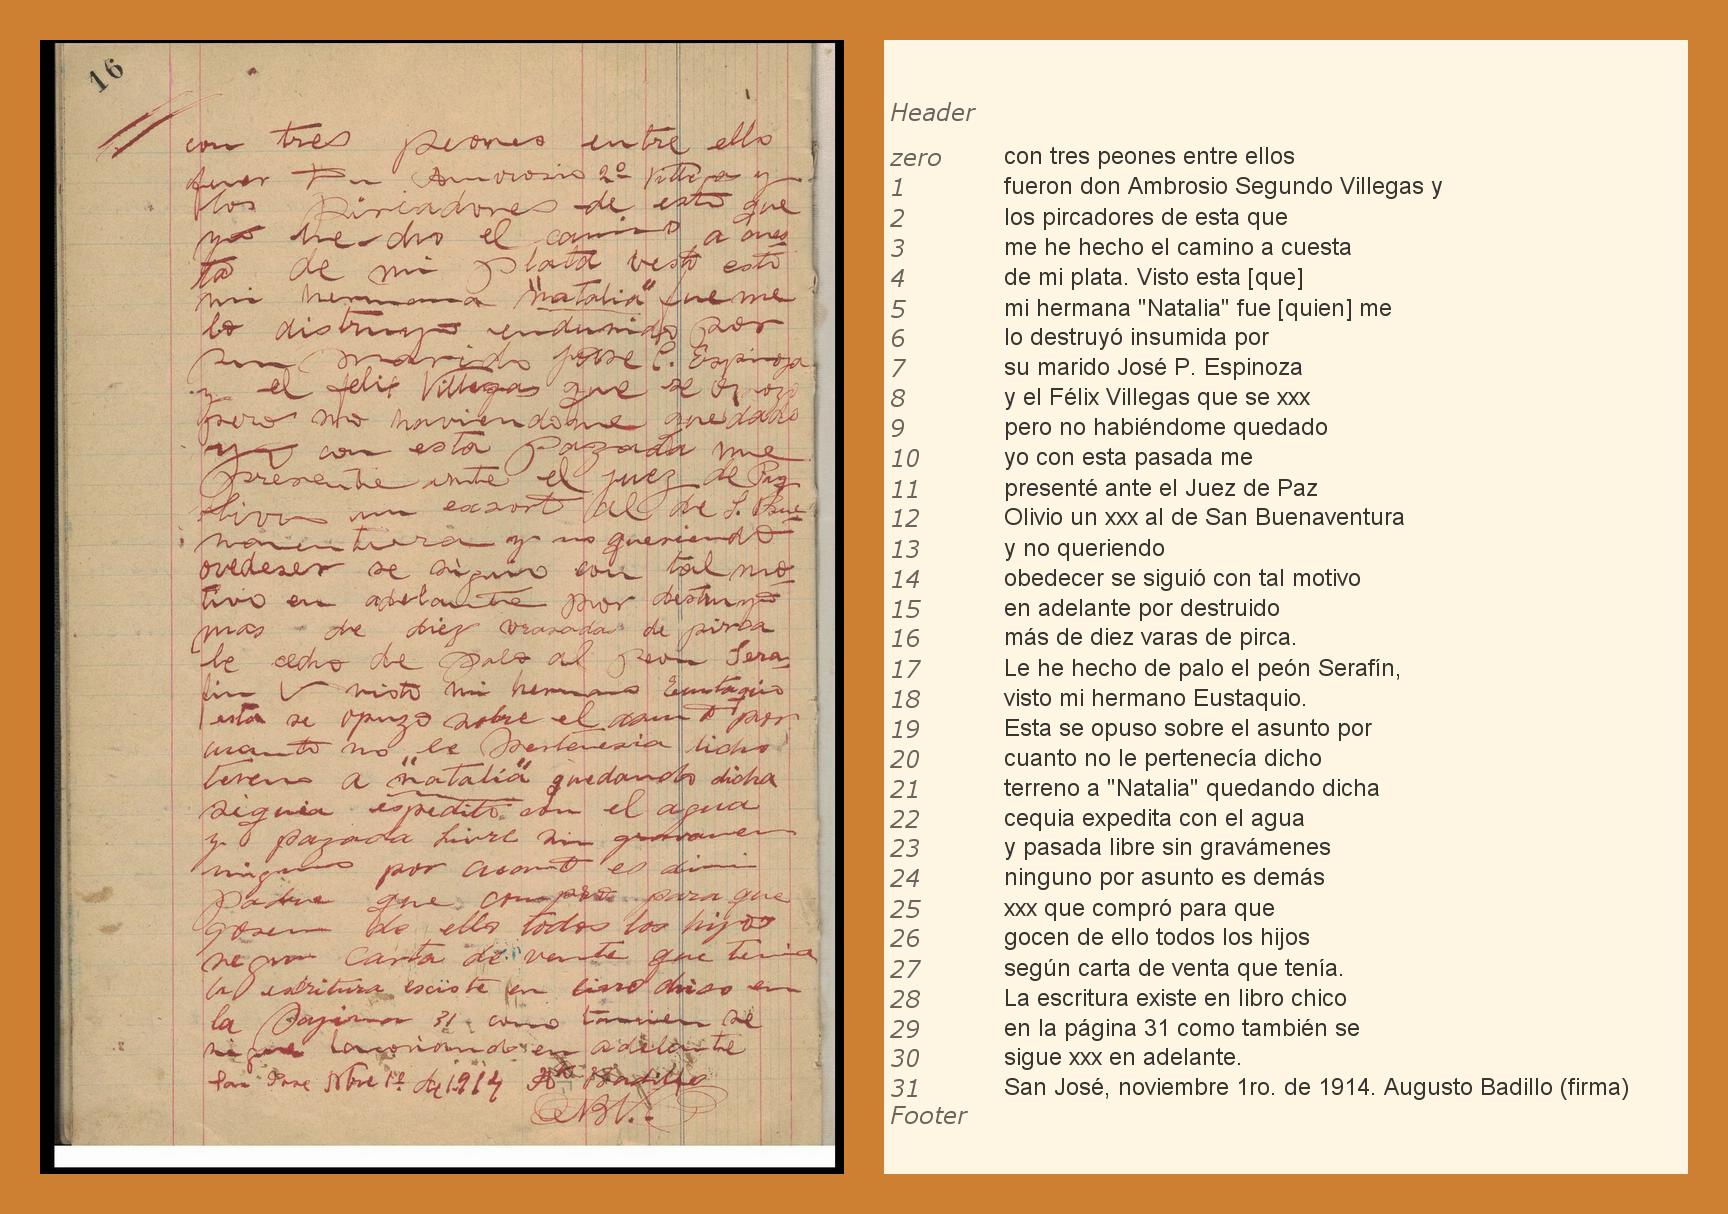 16
con tres peones entre ello
fuer Dn Amvrosio 2º Villega y
los pircadores de esto que
yo he cho el camino a cues
ta de mi plata vesto esto
mi hermana "natalia" fue me
lo distruyo endusido por
sun marido jose C. Espinoza
y el felis Villegas que se opozo
pero no haviendome quedado
yo con esta pazada me
presente ante el juez de Paz
livro un exsort al de S. Bue
naventura y no queriendo
ovedeser se siguio con tal mo
tivo en adelante por destruyo
mas de diez brasada de pirca
le echo de palo al peon Sera
fin V visto mi hermano Eustaquio
esta se opuzo sobre el asunto por
cuanto no le pertenesia dicho
tereno a "natalia" quedando dicha
siquia espedito con el agua
y pazada livre sin gravamen
ninguno por cuanto es dimi
padre que compro para que
gosen de ello todos los hijos
segun carta de vente que tenia
la escritura esciste en livro chico en
la pajina 31 como tamien se
sigue en adelante
San Jose Nbre 1º de 1914 Badillo
Header
zero con tres peones entre ellos
1 fueron don Ambrosio Segundo Villegas y
2 los pircadores de esta que
3 me he hecho el camino a cuesta
4 de mi plata. Visto esta [que]
5 mi hermana "Natalia" fue [quien] me
6 lo destruyó insumida por
7 su marido José P. Espinoza
8 y el Félix Villegas que se xxx
9 pero no habiéndome quedado
10 yo con esta pasada me
11 presenté ante el Juez de Paz
12 Olivio un xxx al de San Buenaventura
13 y no queriendo
14 obedecer se siguió con tal motivo
15 en adelante por destruido
16 más de diez varas de pirca.
17 Le he hecho de palo el peón Serafín,
18 visto mi hermano Eustaquio.
19 Esta se opuso sobre el asunto por
20 cuanto no le pertenecía dicho
21 terreno a "Natalia" quedando dicha
22 cequia expedita con el agua
23 y pasada libre sin gravámenes
24 ninguno por asunto es demás
25 xxx que compró para que
26 gocen de ello todos los hijos
27 según carta de venta que tenía.
28 La escritura existe en libro chico
29 en la página 31 como también se
30 sigue xxx en adelante.
31 San José, noviembre 1ro. de 1914. Augusto Badillo (firma)
Footer